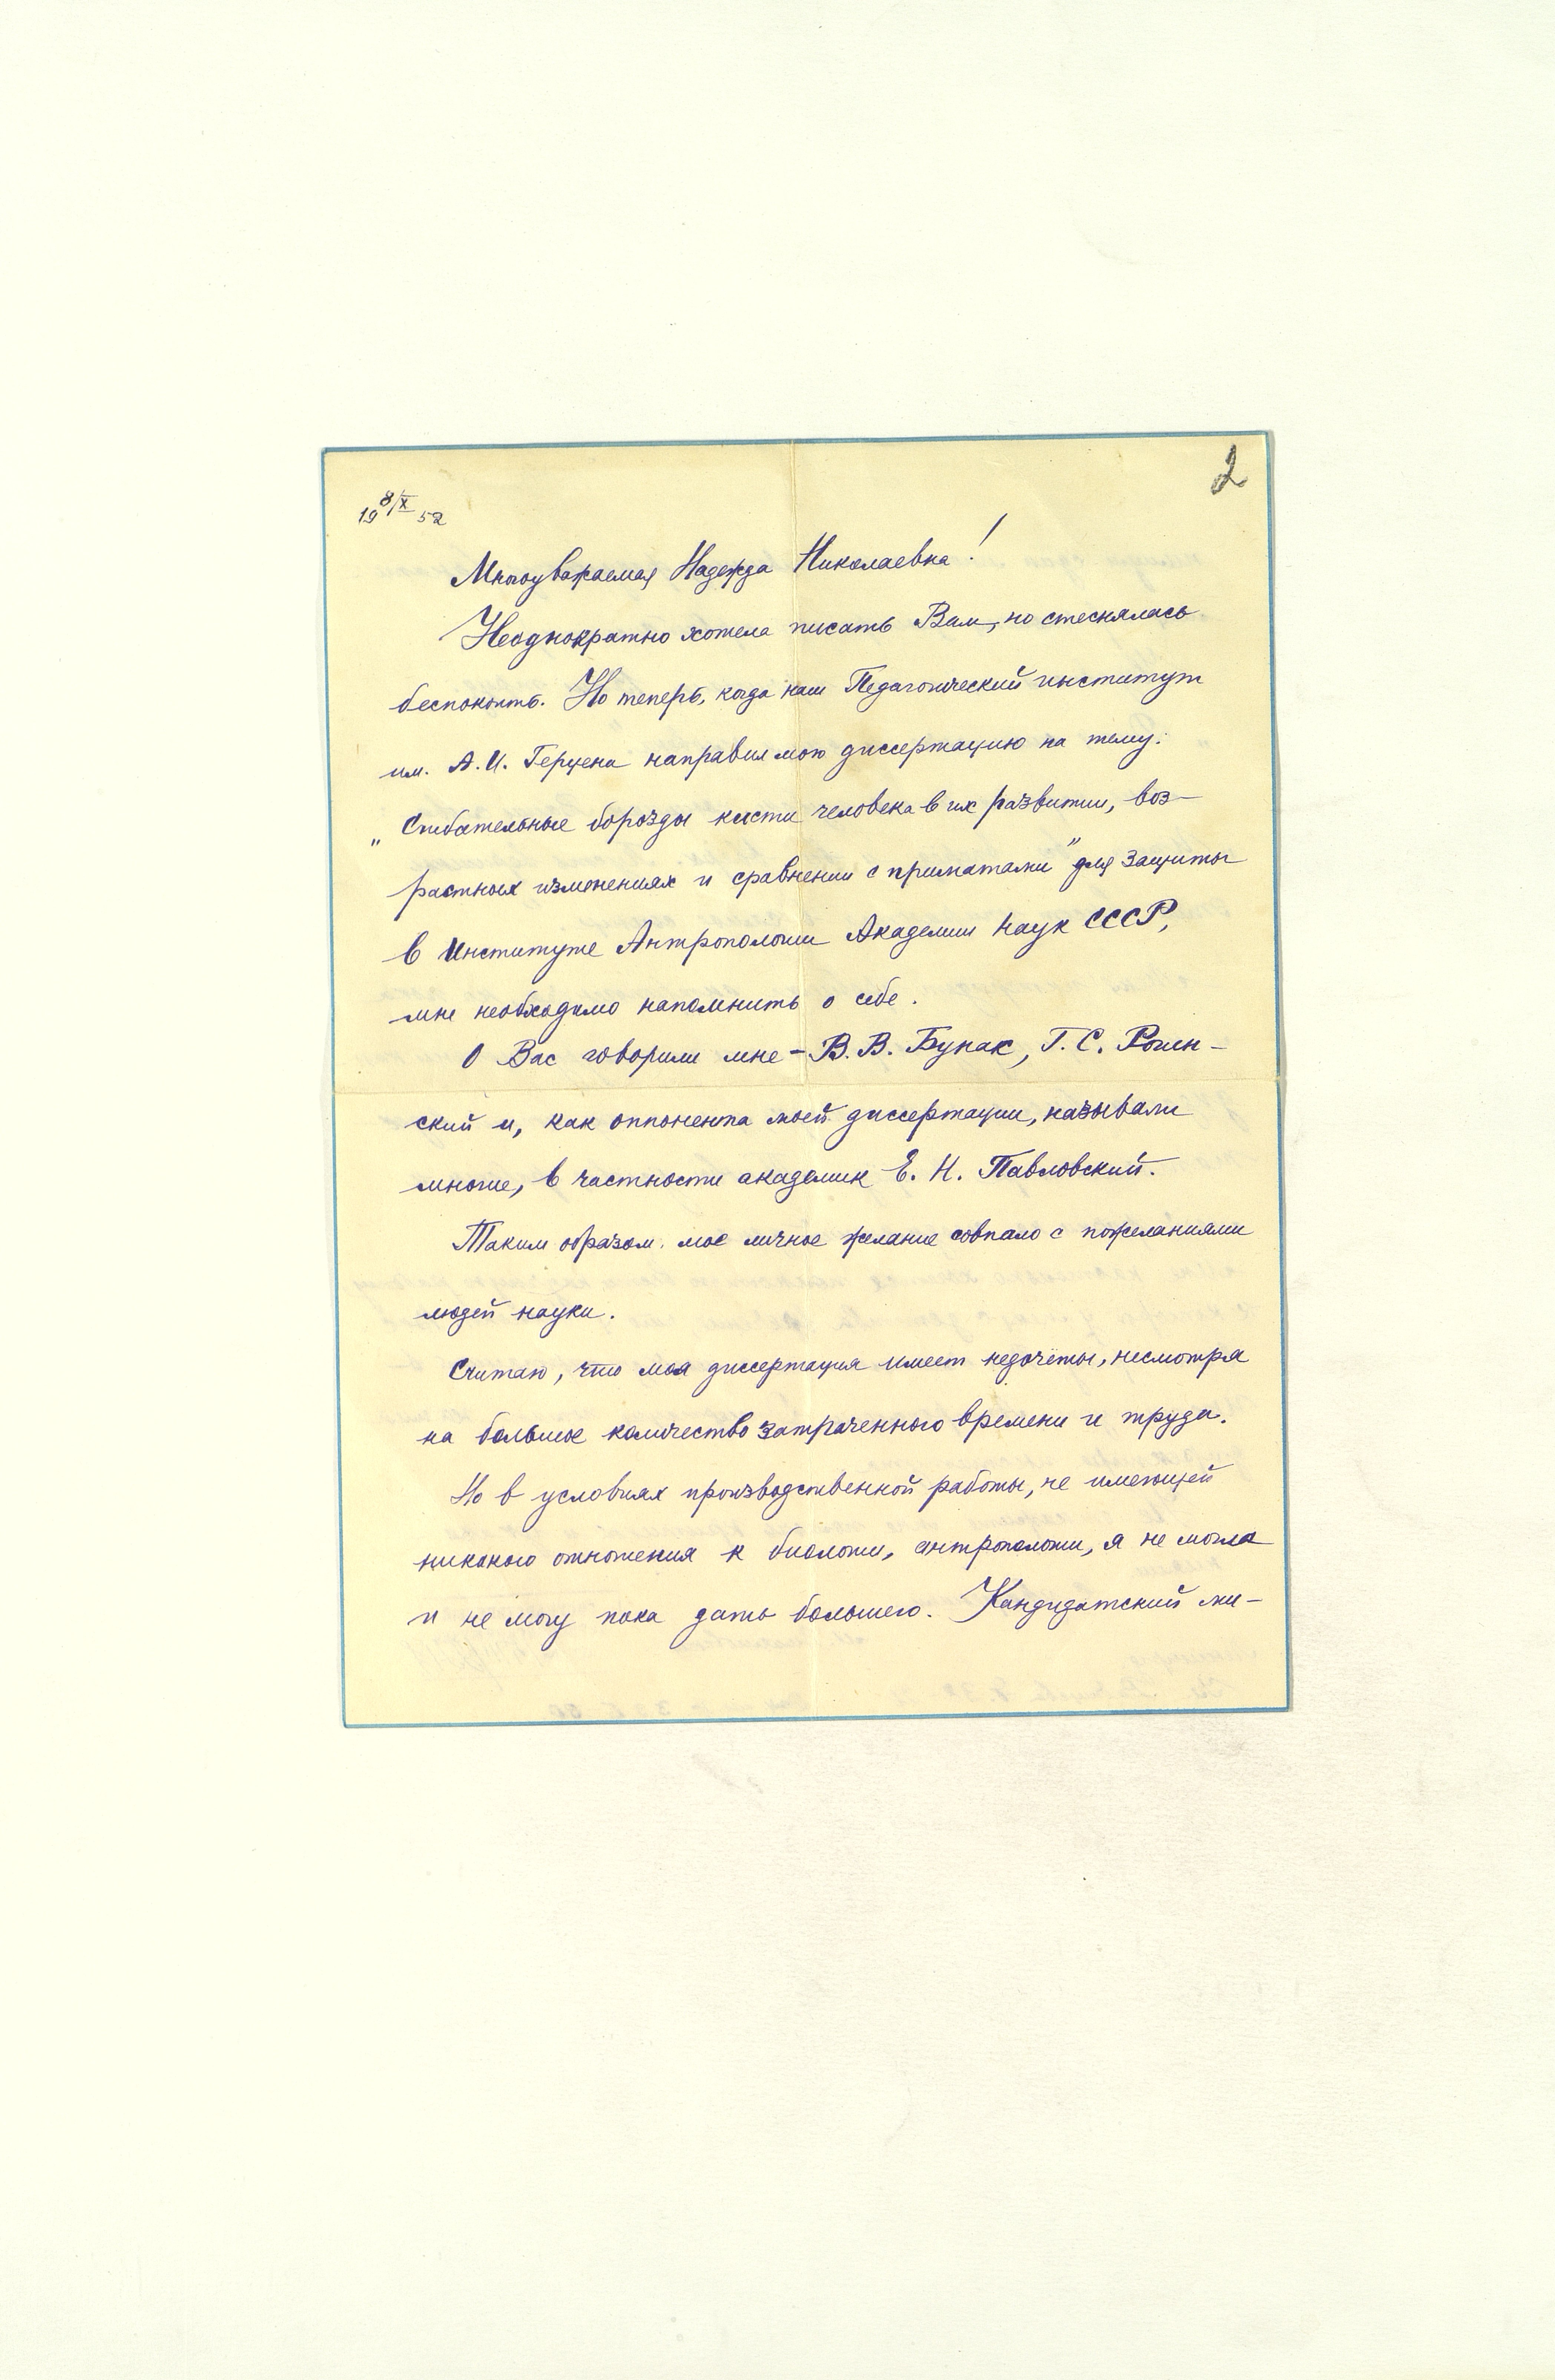 2
19 8/X 52
Многоуважаемая Надежда Николаевна!
Неоднократно хотела писать Вам, но стеснялась
беспокоить. Но теперь, когда наш Педагогический институт
им. А. И. Герцена направил мою диссертацию на тему:
„Сгибательные борозды кисти человека в их развитии, воз-
растных изменениях и сравнении с приматами" для защиты
в Институте Антропологии Академии Наук СССР,
мне необходимо напомнить о себе.
О Вас говорили мне - В. В. Бунак, Г. С. Рогин-
ский и, как оппонента моей диссертации, называли
многие, в частности академик Е. Н. Павловский.
Таким образом, мое личное желание совпало с пожеланиями
людей науки.
Считаю, что моя диссертация имеет недочёты, несмотря
на большое количество затраченного времени и труда.
Но в условиях производственной работы, не имеющей
никакого отношения к биологии, антропологии, я не могла
и не могу пока дать большего. Кандидатский ми-